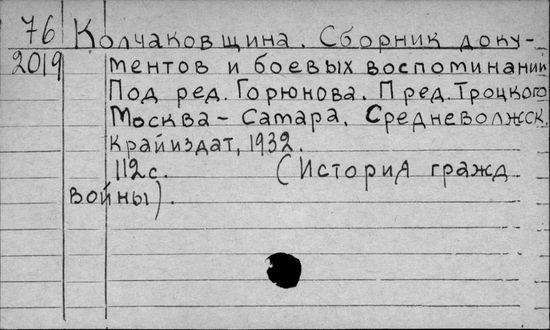 76 Колчаковщина. Сборник доку-
2019 ментов и боевых воспоминаний
Под ред. Горюнова. Пред. Троцкого
Москва - Самара, Средневолжск.
Крайиздат, 1932.
112 с. (История гражд
войны).